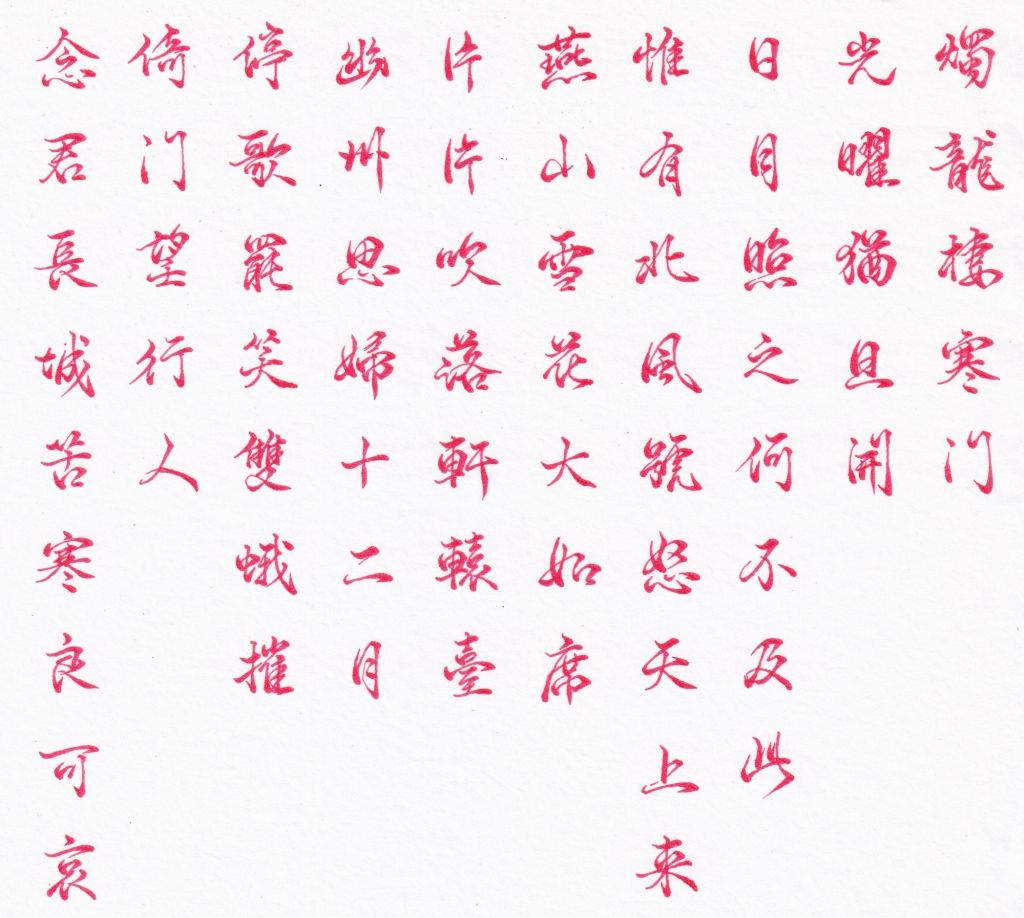 燭龍棲寒门
光曜猶旦開
日月照之何不及此
惟有北風號怒天上来
燕山雪花大如席
片片吹落軒轅臺
幽州思婦十二月
停歌罷笑雙蛾摧
倚门望行人
念君長城苦寒良可哀